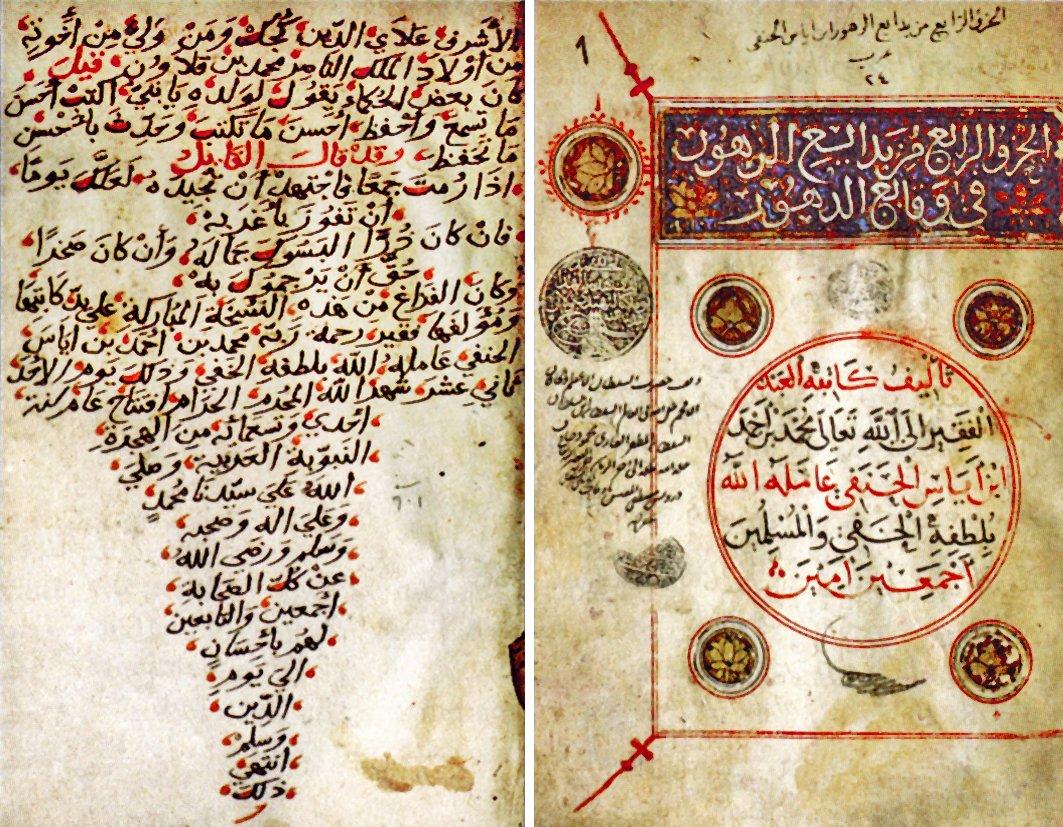 الجزو الرابع من بدايع الزهور لابن اياس الحنفي
عرب
٢٤
1
الجزو الرابع من بدايع الزهور
في وقايع الدهور
تأليف كاتبه العبد
الفقير الى الله تعالى محمد بن احمد
ابن اياس الحنفي عامله الله
بلطفه الخفي والمسلمين
اجمعين امين
الأشرف علاي الدين كجك ومن ولي من أخوته
من أولاد الملك الناصر محمد بن قلاون قيل
كان بعض الحكماء يقول لولده يا بني اكتب أحسن
ما تسمع وأحفظ أحسن ما تكتب وحدث بأحسن
ما تحفظ وقد قال القايل
اذا رمت جمعا فاجتهد أن تجيده لعلك يوما
أن تفوز بأجره
فان كان درا البسوك جماله وأن كان صخرا
حق أن يرجموك به
وكان الفراغ من هذه النسخة المباركة علي يد كاتبها
ومؤلفها فقير رحمة ربه محمد بن احمد بن اياس
الحنفي عامله الله بلطفه الخفي وذلك يوم الأحد
ثاني عشر شهر الله المحرم الحرام افتتاح عام سنة
أحدي وتسعمائه من الهجرة
النبوية العربية وصلي
الله علي سيدنا محمد
وعلي اله وصحبه
وسلم ورضي الله
عن كل الصحابة
أجمعين والتابعين
لهم بأحسان
الي يوم
الدين
وسلم
انتهي
ذلك
٩٠١